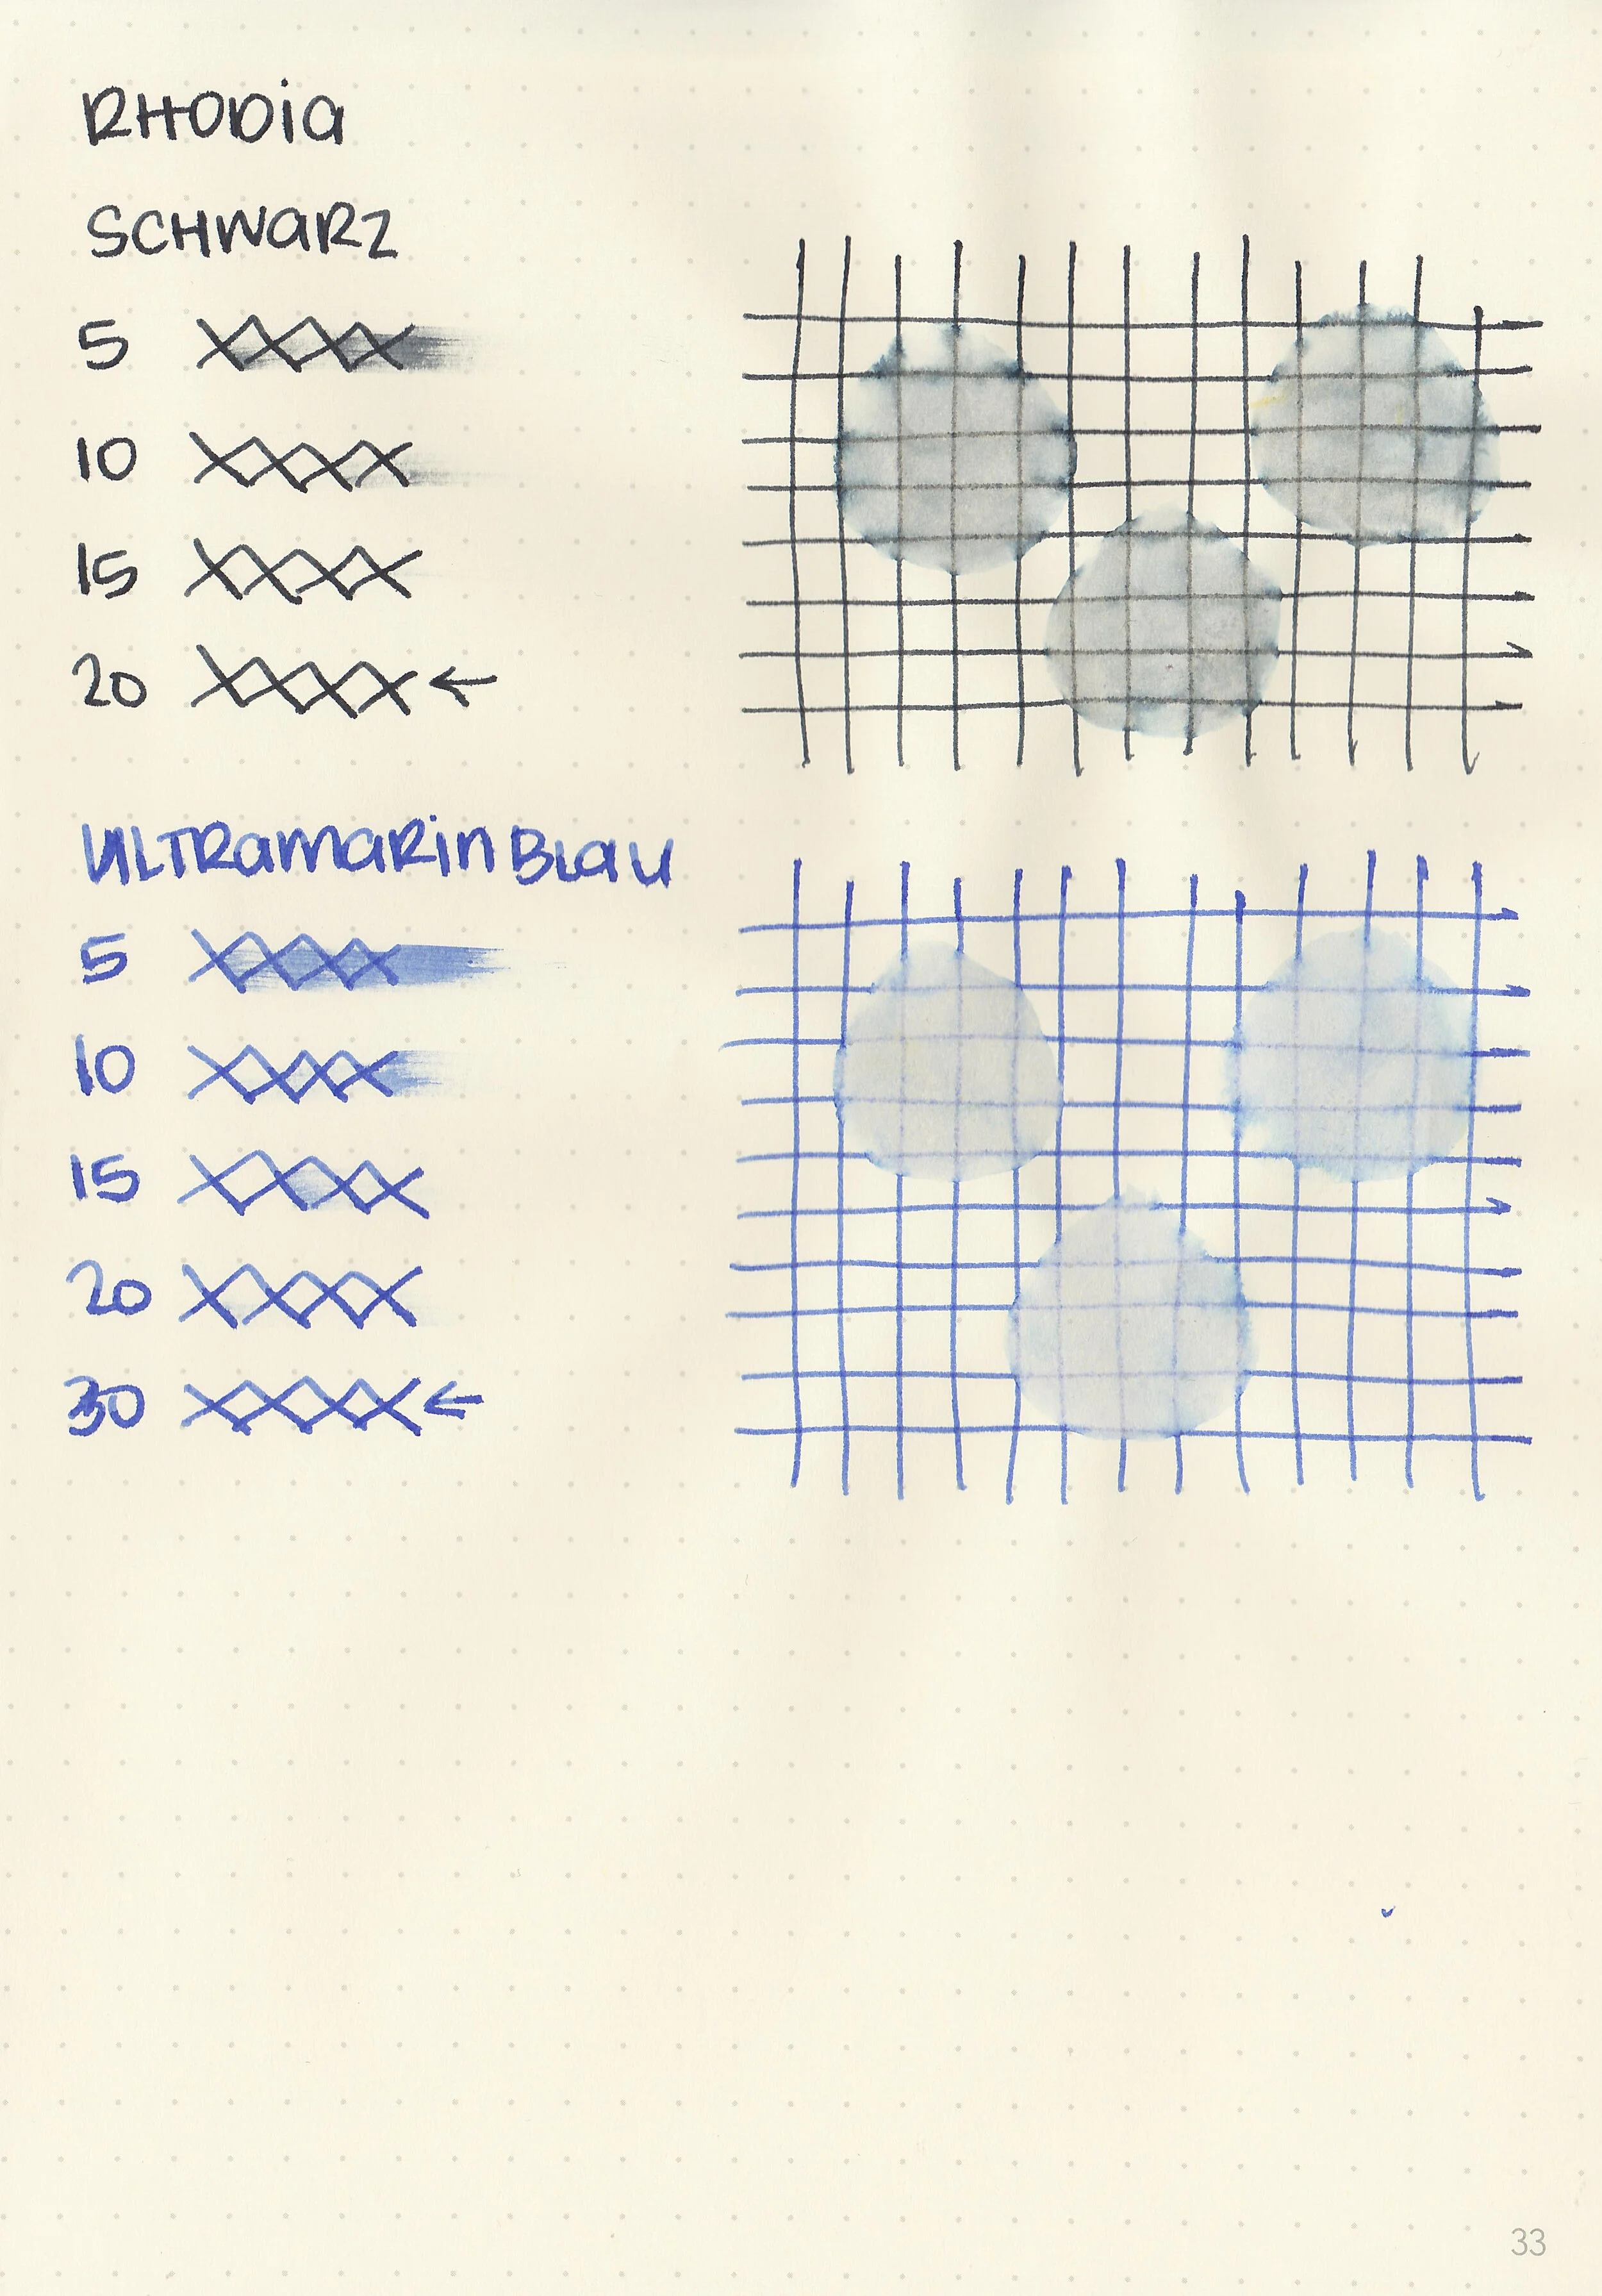 RHODIA
SCHWARZ
5
10
15
20 ←
ULTRAMARIN BLAU
5
10
15
20
30 ←
33